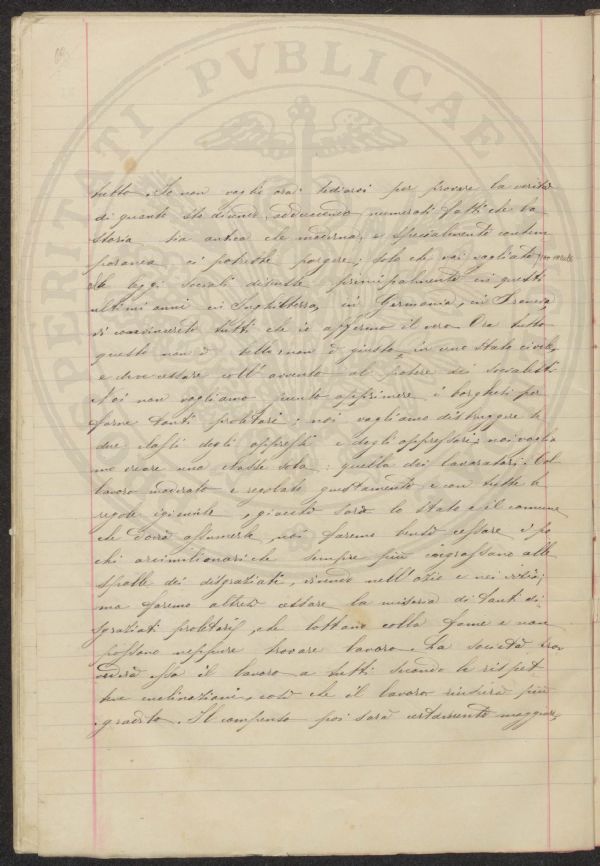 PROSPERITATI PVBLICAE
tutto. Io non voglio ora tediarvi per provare la verità
di quanto sto dicendo adducendo numerosi fatti che la
storia sia antica che moderna, e specialmente contem
poranea ci potrebbe porgere; solo che voi vogliate por mente
alle leggi sociali discusse principalmente in questi
ultimi anni in Inghilterra, in Germania, in Francia,
di convincerete tutti che io affermo il vero. Ora tutto
questo non è bello non è giusto, in uno stato civile,
e deve cessare coll'avvento al potere dei socialisti
Noi non vogliamo punto opprimere i borghesi per
farne tanti proletari; noi vogliamo distruggere le
due classi degli oppressi e degli oppressori, noi voglia
mo creare una classe sola: quella dei lavoratori. Col
lavoro moderato e regolato giustamente e con tutte le
regole igieniche, giacchè sarà lo stato e il comune
che dovrà assumerlo, noi faremo bensì cessare i po
chi arcimilionari che sempre più ingrassano alle
spalle dei disgraziati, vivendo nell'ozio e nei vizii;
ma faremo altresì cessare la miseria di tanti di
sgraziati proletarii, che lottano colla fame e non
possono neppure trovare lavoro. La società prov
vederà essa il lavoro a tutti secondo le rispet
tive inclinazioni, così che il lavoro riuscirà più
gradito. Il compenso poi sarà certamente maggiore,